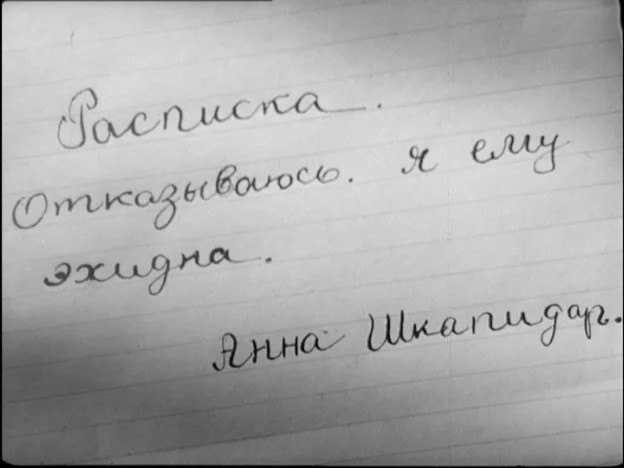 Расписка.
Отказываюсь. я ему
эхидна.
Анна Шкапидар.